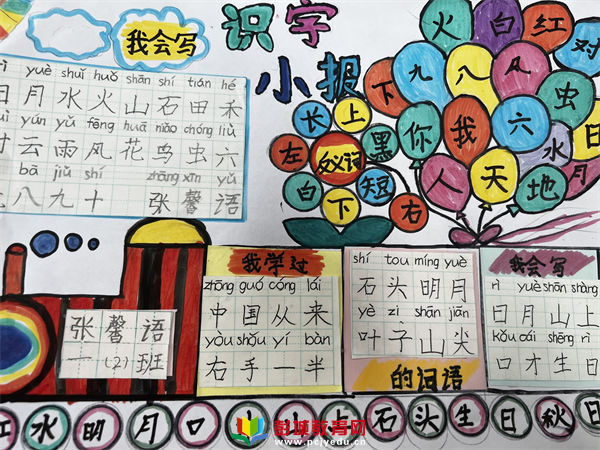 我会写
识字
小报
yuè shuǐ huǒ shān shí tián hé
日月水火山石田禾
yún yǔ fēng huā niǎo chóng liù
云雨风花鸟虫六
bā jiǔ shí zhāng xīn yǔ
八九十 张馨语
长上
左 黑
反义词
白下短右
火白红对
下九八风虫
你我六水月
人天地日
张馨语
一(2)班
我学过
zhōng guó cóng lái
中国从来
yòu shǒu yí bàn
右手一半
shí tou míng yuè
石头明月
yè zi shān jiān
叶子山尖
的词语
我会写
rì yuè shān shàng
日月山上
kǒu cái shēng rì
口才生日
水明月口
山上石头生日秋日
彭城教育网
www.pcjyedu.cn